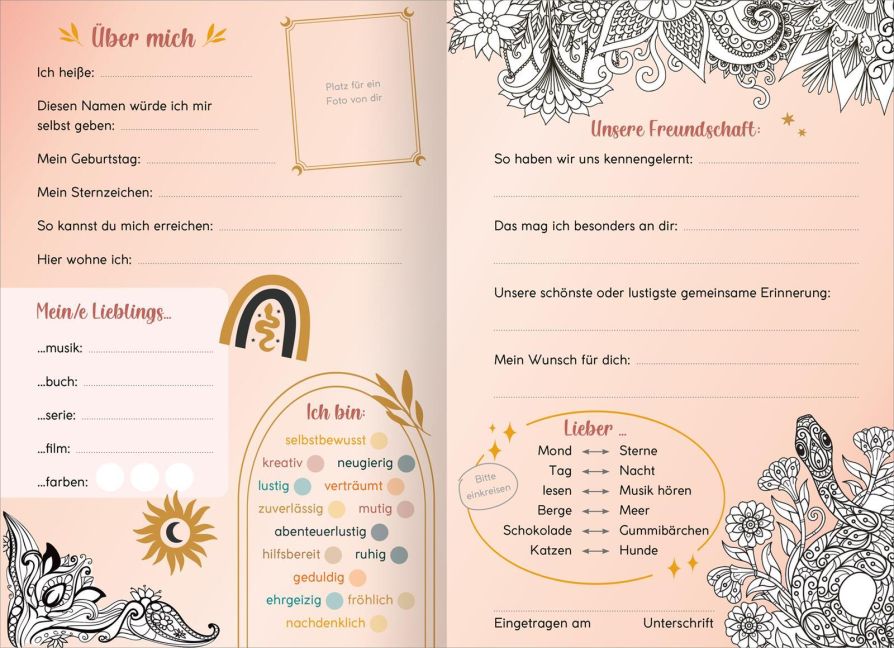 Über mich
Ich heiße:
Diesen Namen würde ich mir
selbst geben:
Mein Geburtstag:
Mein Sternzeichen:
So kannst du mich erreichen:
Hier wohne ich:
Platz für ein
Foto von dir
Mein/e Lieblings...
...musik:
...buch:
...serie:
...film:
...farben:
Ich bin:
selbstbewusst
kreativ neugierig
lustig verträumt
zuverlässig mutig
abenteuerlustig
hilfsbereit ruhig
geduldig
ehrgeizig fröhlich
nachdenklich
Unsere Freundschaft:
So haben wir uns kennengelernt:
Das mag ich besonders an dir:
Unsere schönste oder lustigste gemeinsame Erinnerung:
Mein Wunsch für dich:
Lieber ...
Bitte
einkreisen
Mond ↔ Sterne
Tag ↔ Nacht
lesen ↔ Musik hören
Berge ↔ Meer
Schokolade ↔ Gummibärchen
Katzen ↔ Hunde
Eingetragen am Unterschrift